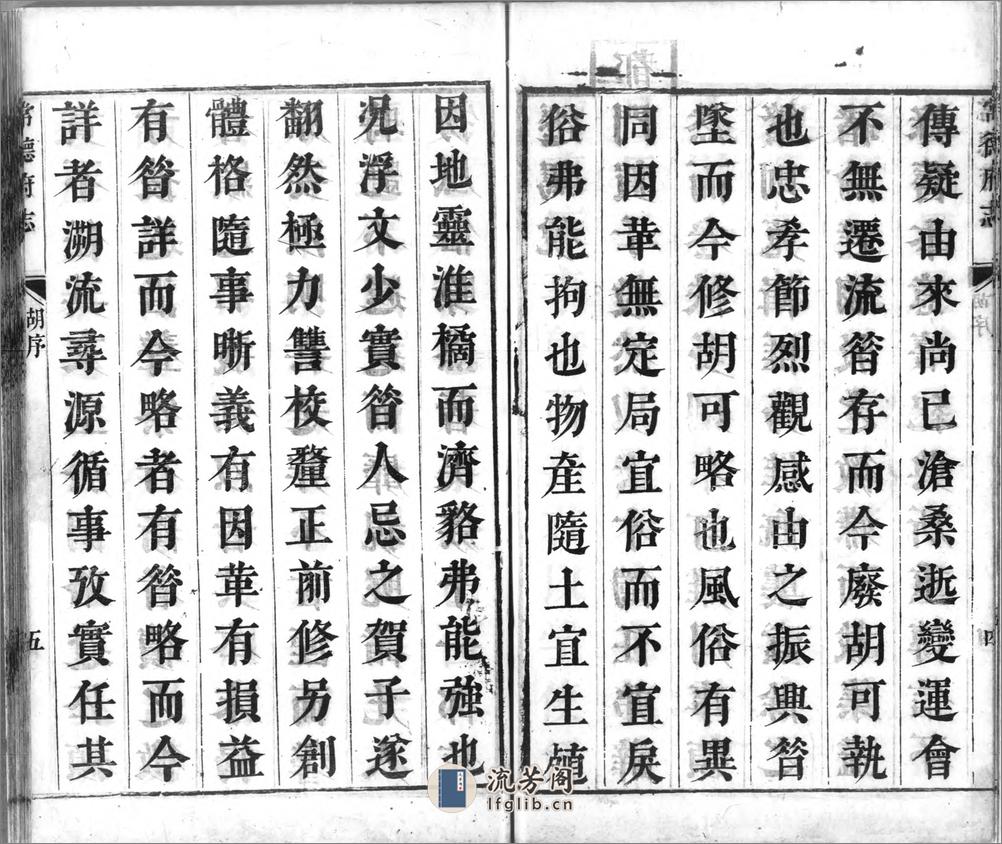 常德府志
傳疑由來尚已滄桑逝變運會
不無遷流昝存而今廢胡可執
也忠孝節烈觀感由之振興昝
墜而今修胡可略也風俗有異
同因革無定局宜俗而不宜戾
俗弗能拘也物產隨土宜生殖
因地靈淮橘而濟貉弗能強也
況浮文少實昝人忌之賀子遂
翻然極力讐校釐正前修另創
體格隨事晰義有因革有損益
有昝詳而今略者有昝略而今
詳者溯流尋源循事攷實任其
常德府志
胡序
五
流芳阁
lfglib.cn